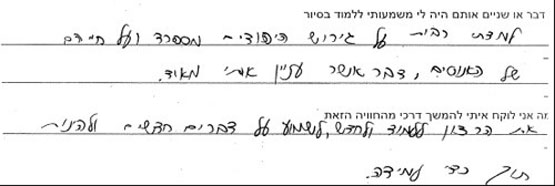 דבר או שניים אותם היה לי משמעותי ללמוד בסיור
למדתי רבות על גירוש היהודים מספרד ועל חייהם
של האנוסים, דבר אשר עניין אותי מאוד.
מה אני לוקח איתי להמשך דרכי מהחוויה הזאת
את הרצון ללמוד ולחדש, לשמוע על דברים חדשים ולהנות
תוך כדי עמידה.